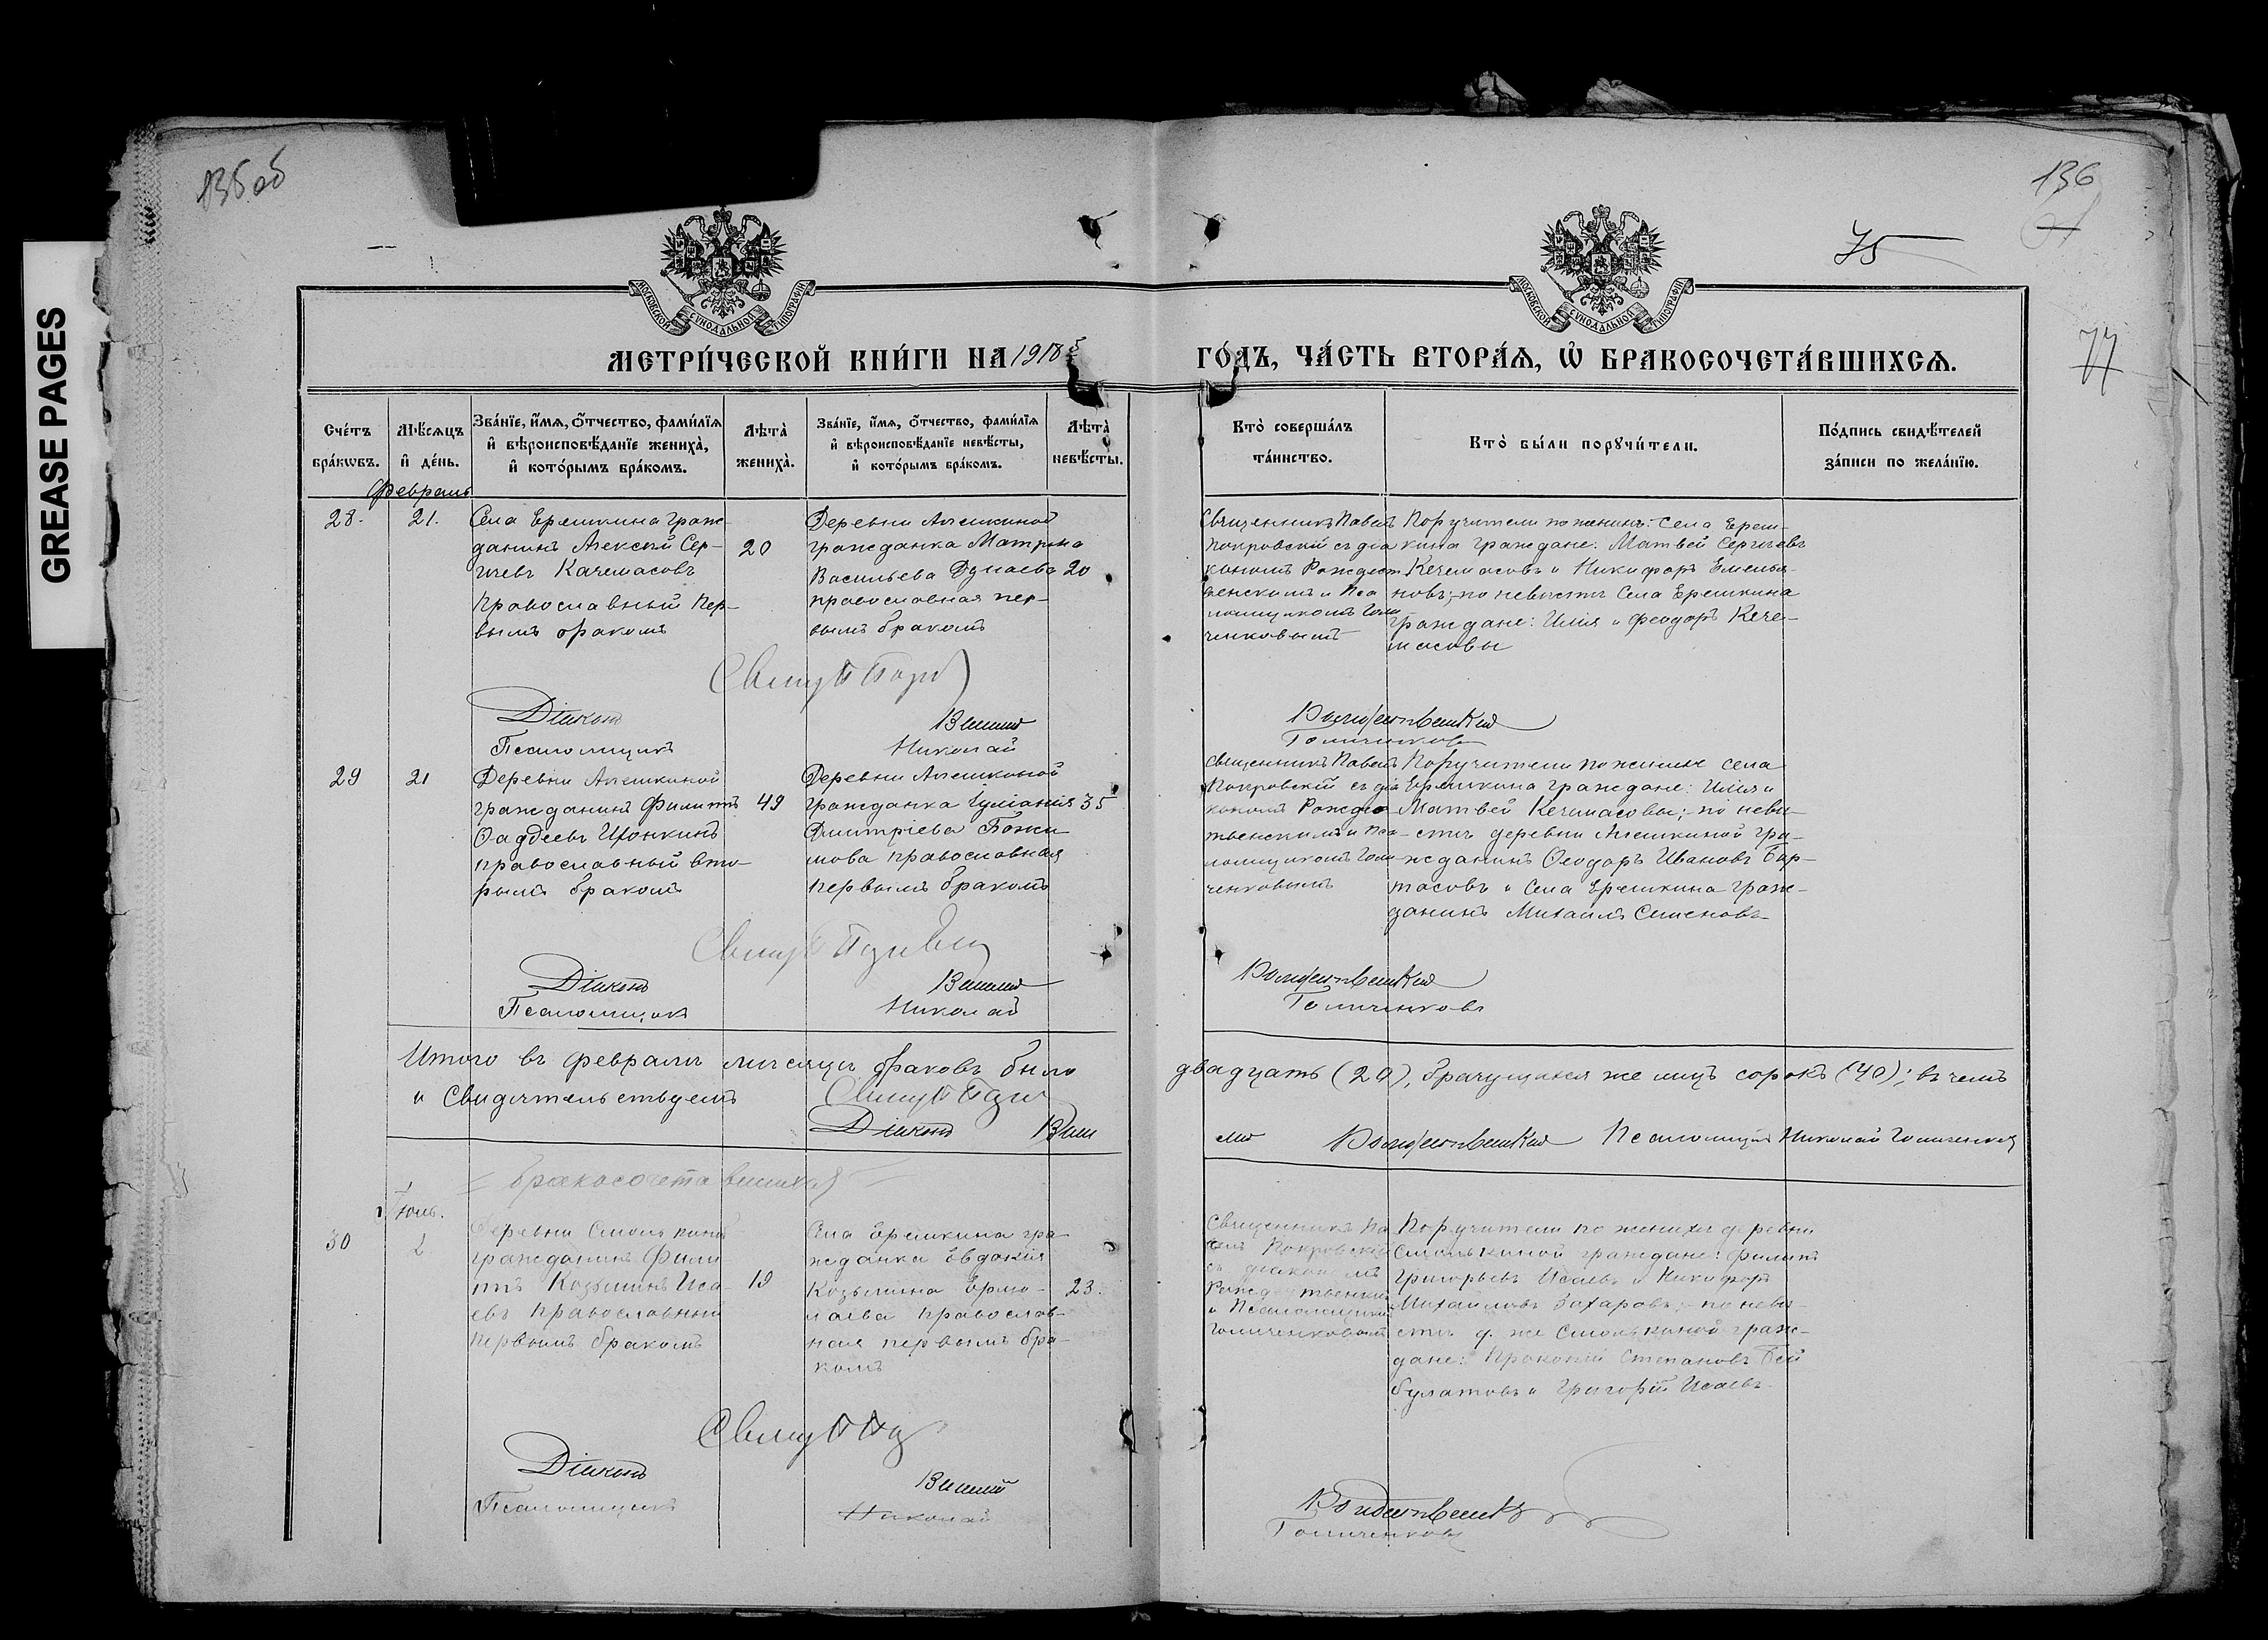 GREASE PAGES
135 об
136
75
77
МОСКОВСКОЙ СѴНОДАЛЬНОЙ ТИПОГРАФІИ
МОСКОВСКОЙ СѴНОДАЛЬНОЙ ТИПОГРАФІИ
МЕТРИ́ЧЕСКОЙ КНИ́ГИ НА 1918 й
ГО́ДЪ, ЧА́СТЬ ВТОРА́Я, Ѡ҆ БРАКОСОЧЕТА́ВШИХСЯ.
Сче́тъ бра́кѡвъ.
Мѣ́сяцъ и҆ де́нь.
Зва́нїе, и҆́мя, ѻ҆́тчество, фами́лїя
и҆ вѣроисповѣ́данїе жениха̀,
и҆ кото́рымъ бра́комъ.
Лѣта̀ жениха̀.
Зва́нїе, и҆́мя, ѻ҆́тчество, фами́лїя
и҆ вѣроисповѣ́данїе невѣ́сты,
и҆ кото́рымъ бра́комъ.
Лѣта̀ невѣ́сты.
Кто̀ соверша́лъ
та́инство.
Кто̀ бы́ли порꙋчи́тели.
По́дпись свидѣ́телей
за́писи по жела́нїю.
Февраль
28.
21.
Села Ерешкина граж-
данинъ Алексѣй Сер-
гѣевъ Качемасовъ
православный пер-
вымъ бракомъ
20
Деревни Алешкиной
гражданка Матрона
Васильева Дунаева
православная пер-
вымъ бракомъ
20
Священникъ Павелъ
Покровскій съ діа
кономъ Рождест
венскимъ и Пса
ломщикомъ Голи
ченковымъ
Поручители по женихѣ: села Ереш-
кина граждане: Матвей Сергѣевъ
Кечемасовъ и Никифоръ Емелья-
новъ; по невѣстѣ Села Ерешкина
граждане: Илія и Феодоръ Кече-
масовы
Діаконъ
Псаломщикъ
Николай
Голиченковъ
29
21
Деревни Алешкиной
гражданинъ Филиппъ
Фаддеевъ Цонкинъ
православный вто
рымъ бракомъ
49
Деревни Алешкиной
гражданка Іуліанія
Дмитріева Божи
мова православная
первымъ бракомъ
35
Священникъ Павелъ
Покровскій съ діа
кономъ Рождес
твенскимъ и Пса-
ломщикомъ Голи
ченковымъ
Поручители по женихѣ села
Ерешкина граждане: Илія и
Матвей Кечемасовы; по невѣ-
стѣ деревни Алешкиной гра-
жданинъ Феодоръ Ивановъ Бар-
тасовъ и Села Ерешкина граж-
данинъ Михаилъ Семеновъ
Діаконъ
Псаломщикъ
Николай
Голиченковъ
Итого въ февралѣ мѣсяцѣ браковъ было двадцать (20), брачущихся же лицъ сорокъ (40); въ чемъ
и Свидѣтельствуемъ
Діаконъ
Псаломщикъ Николай Голиченковъ
Бракосочетавшихся
Іюль.
30
2
Деревни Смолькиной
гражданинъ Фили
ппъ Козьминъ Иса-
евъ православный
первымъ бракомъ
19
Села Ерешкина гра
жданка Евдокія
Козьмина Ермо-
лаева православ-
ная первымъ бра
комъ
23.
Священникъ Па
велъ Покровскій
съ діакономъ
Рождественскимъ
и Псаломщикомъ
Голиченковымъ
Поручители по женихѣ деревни
Смолькиной граждане: Филиппъ
Григорьевъ Исаевъ и Никифоръ
Михайловъ Захаровъ; по невѣ-
стѣ д. же Смолькиной граж-
дане: Прокопій Степановъ Бей
булатовъ и Григорій Исаевъ
Діаконъ
Псаломщикъ
Николай
Голиченковъ